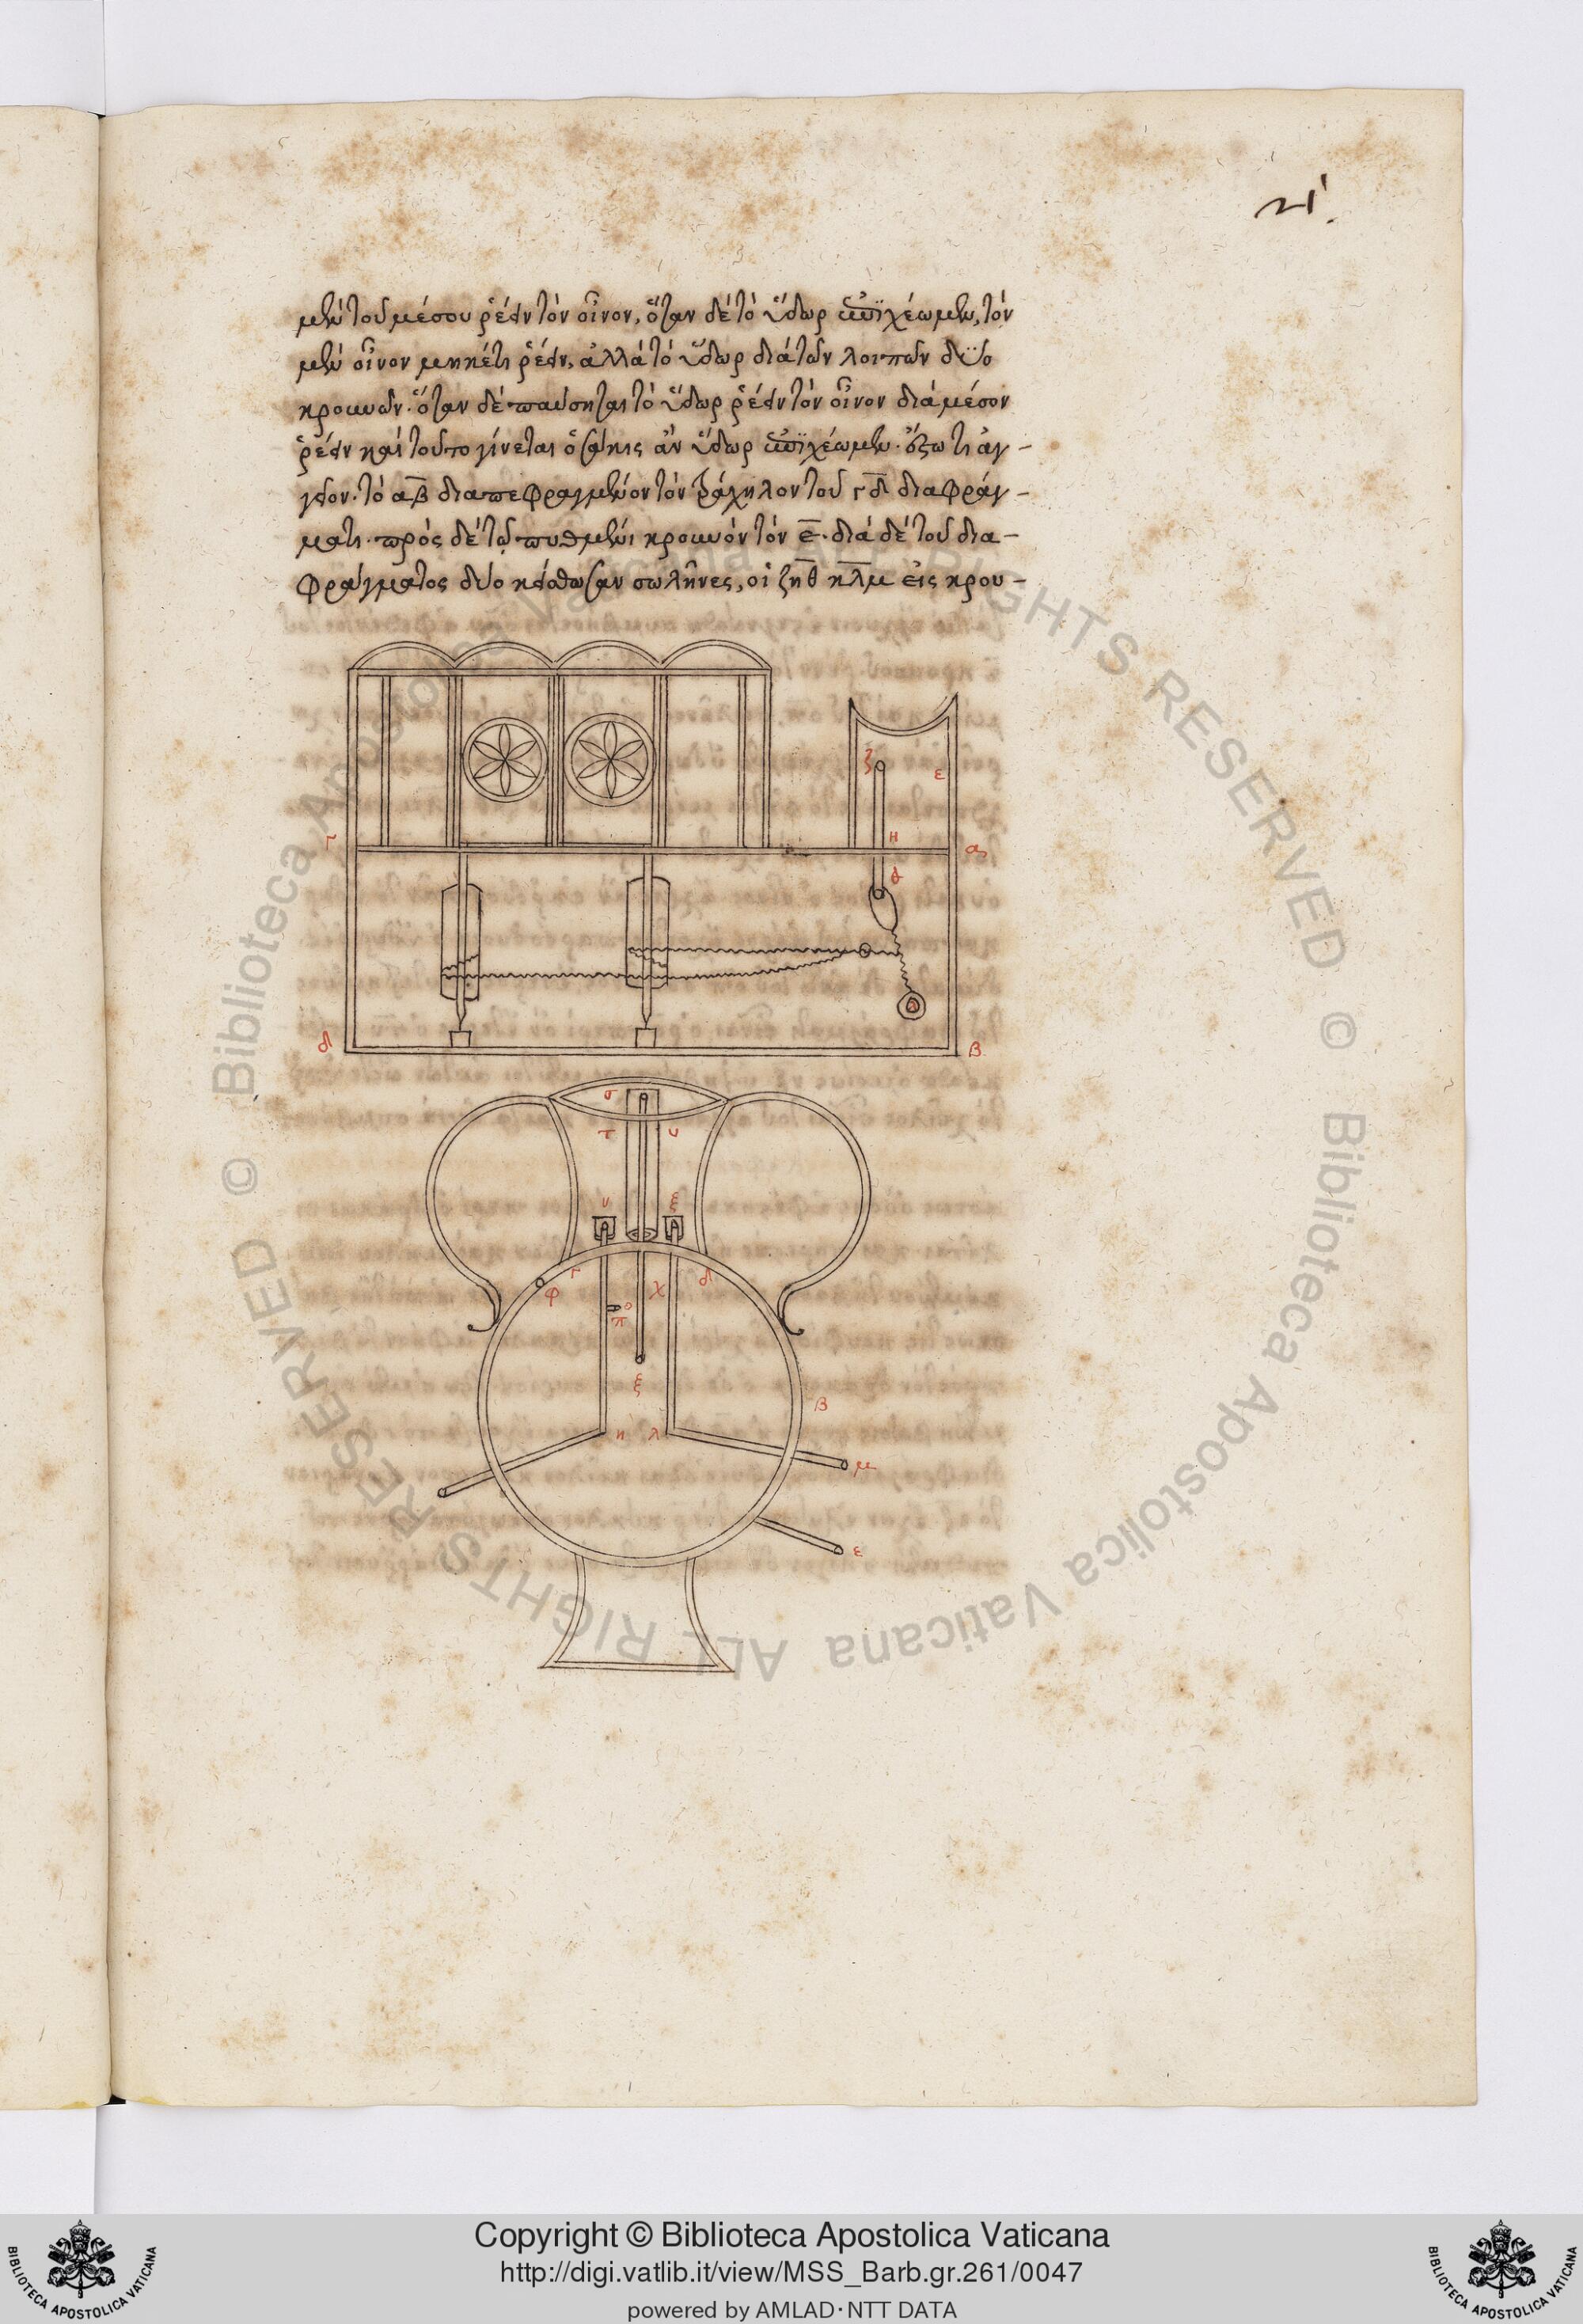 21.
μὲν τοῦ μέσου ῥέειν τὸν οἶνον, ὅταν δὲ τὸ ὕδωρ ἐπιχέωμεν, τὸν
μὲν οἶνον μηκέτι ῥέειν, ἀλλὰ τὸ ὕδωρ διὰ τῶν λοιπῶν δύο
κρουνῶν. ὅταν δὲ παύσηται τὸ ὕδωρ ῥέειν τὸν οἶνον διὰ μέσον
ῥέειν καὶ τοῦτο γίνεται ὁσάκις ἂν ὕδωρ ἐπιχέωμεν. ἔξω τι ἀγ-
γεῖον. τὸ αβ διαπεφραγμένον τὸν τράχηλον τοῦ γδ διαφράγ-
ματι. πρὸς δὲ τῷ πυθμένι κρουνὸν τὸν ε. διὰ δὲ τοῦ δια-
φράγματος δύο κείσθωσαν σωλῆνες, οἱ ζηθ κλμ εἰς κρου-
ζ ε
γ η α
θ
δ β
σ
τ υ
ν ξ
γ δ
φ χ
ο
π
ξ
β
κ λ
μ
ε
© Biblioteca Apostolica Vaticana ALL RIGHTS RESERVED © Biblioteca Apostolica Vaticana ALL RIGHTS RESERVED
BIBLIOTECA APOSTOLICA VATICANA
Copyright © Biblioteca Apostolica Vaticana
http://digi.vatlib.it/view/MSS_Barb.gr.261/0047
powered by AMLAD・NTT DATA
BIBLIOTECA APOSTOLICA VATICANA